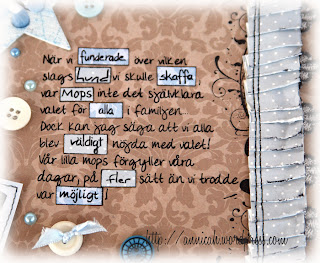 När vi funderade över vilken
slags hund vi skulle skaffa,
var Mops inte det självklara
valet för alla i familjen...
Dock kan jag säga att vi alla
blev väldigt nöjda med valet!
Vår lilla mops förgyller våra
dagar, på fler sätt än vi trodde
var möjligt!
http://annicah.wordpress.com